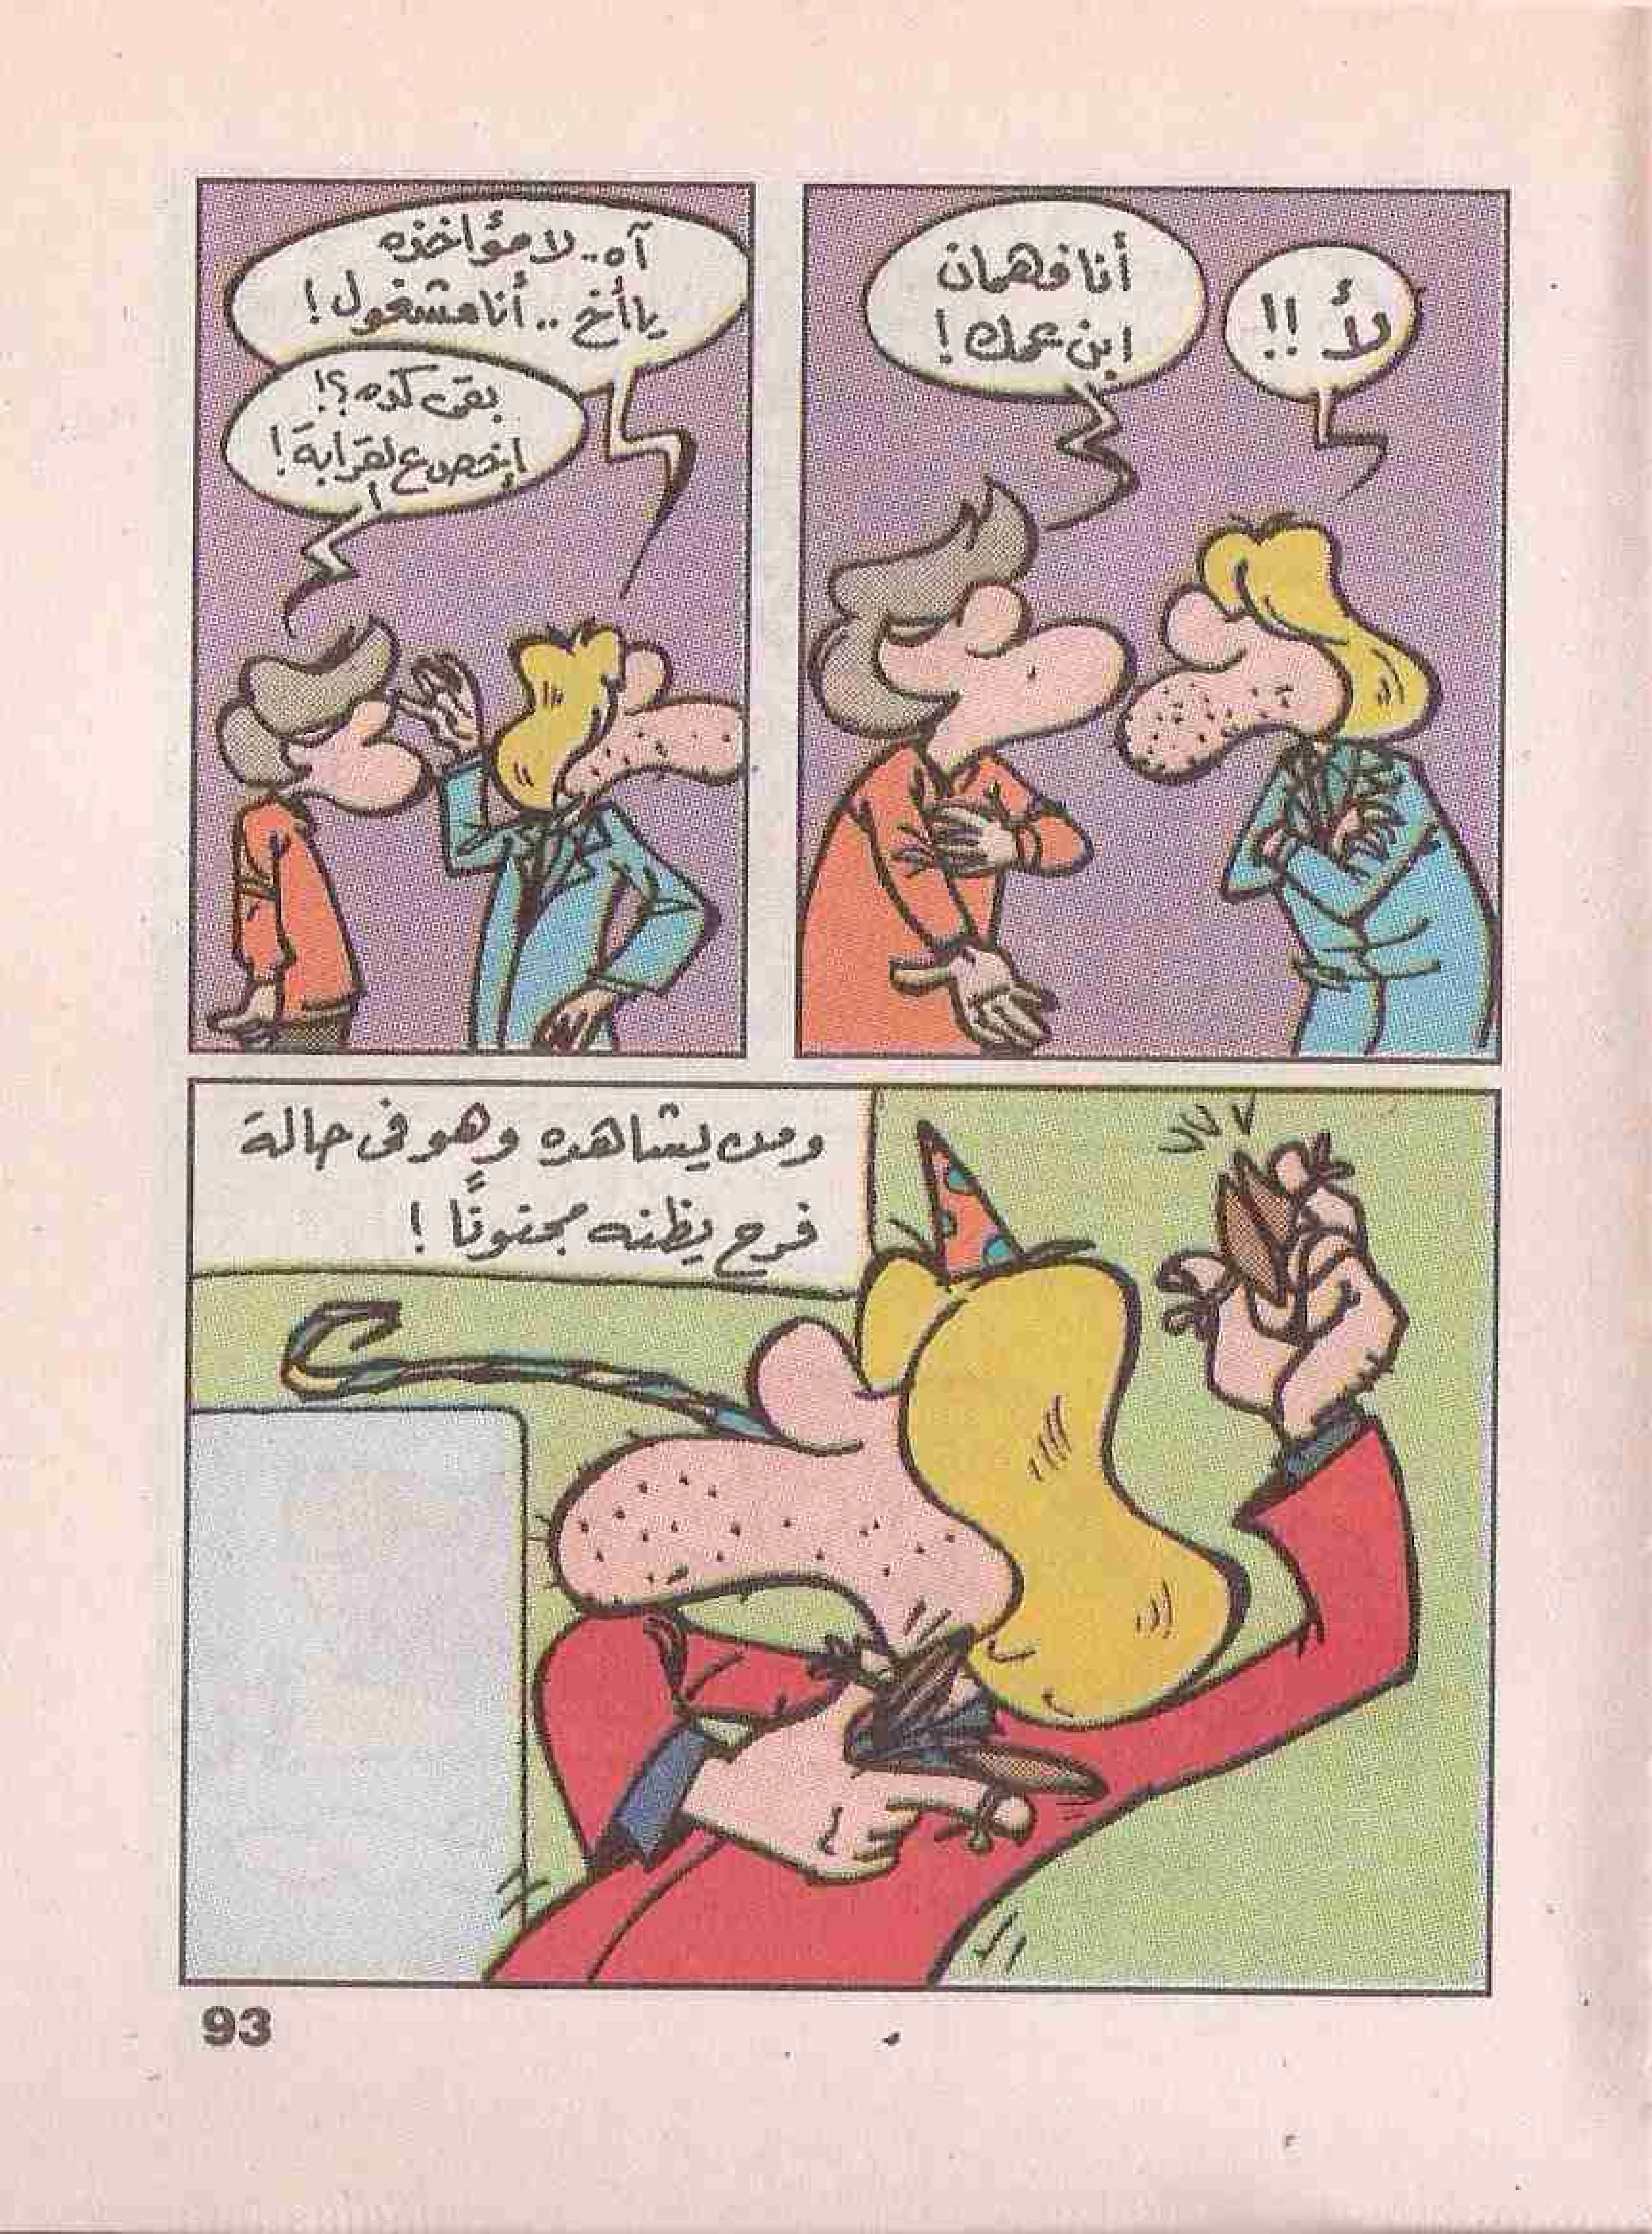 لأ !!
أنا فهمان
ابن عمك !
آه.. لا مؤاخذه
يا أخ .. أنا مشغول !
بقى كده ؟!
إخص ع القرابة !
ومن يشاهده وهو فى حالة
فرح يظنه مجنونًا !
93